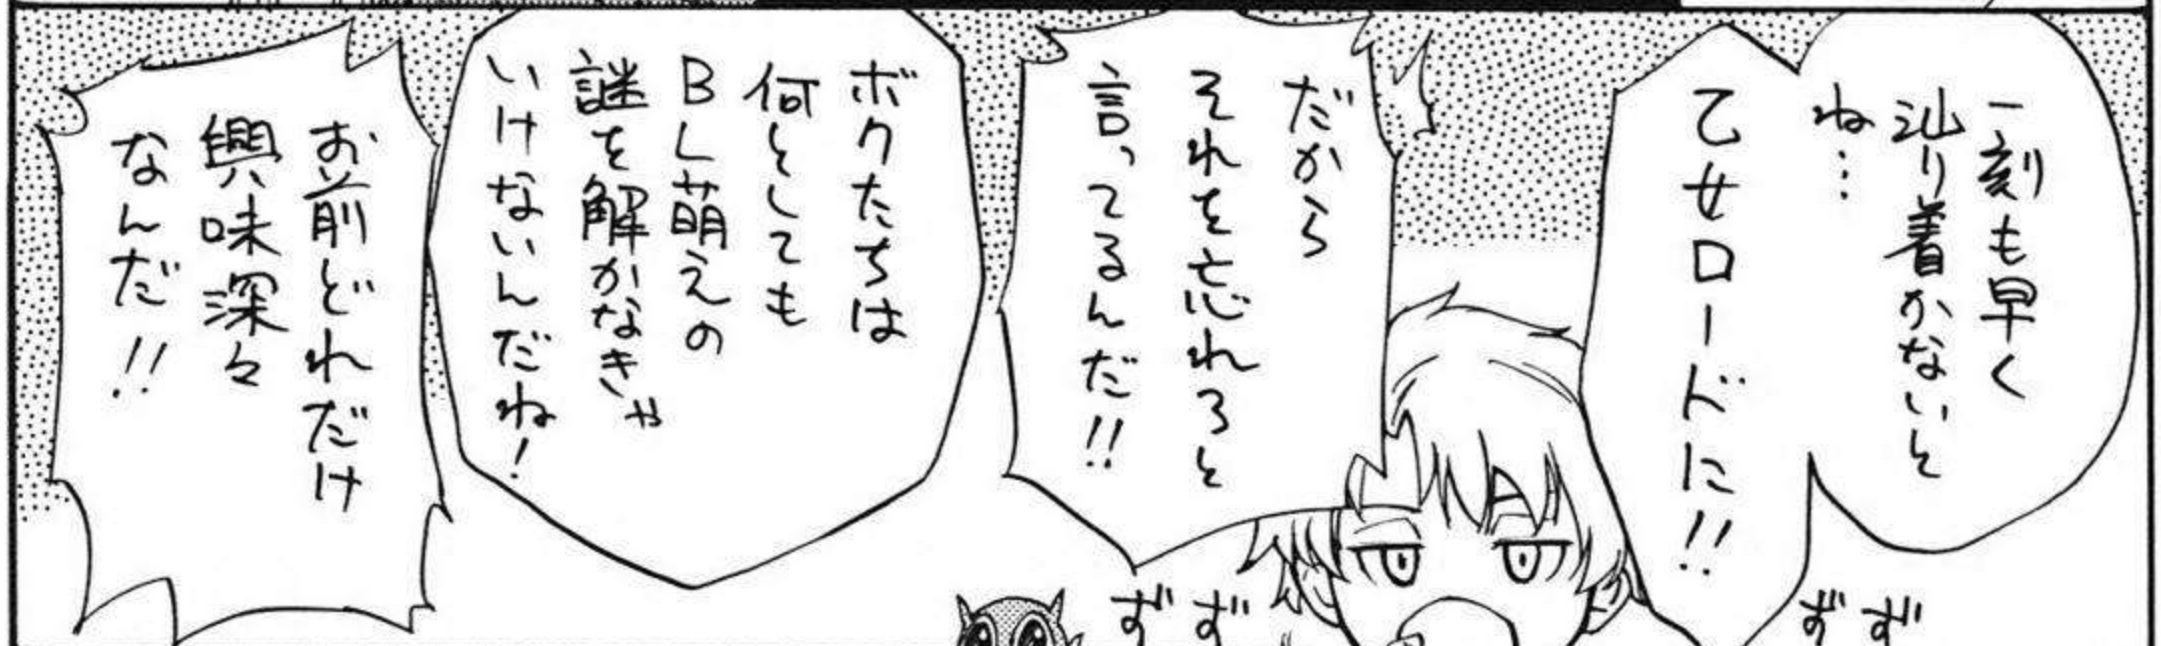 一刻も早く
辿り着かないと
ね…
乙女ロードに!!
だから
それを忘れろと
言ってるんだ!!
ボクたちは
何としても
BL萌えの
謎を解かなきゃ
いけないんだね!
お前どれだけ
興味深々
なんだ!!
ずず
ずず